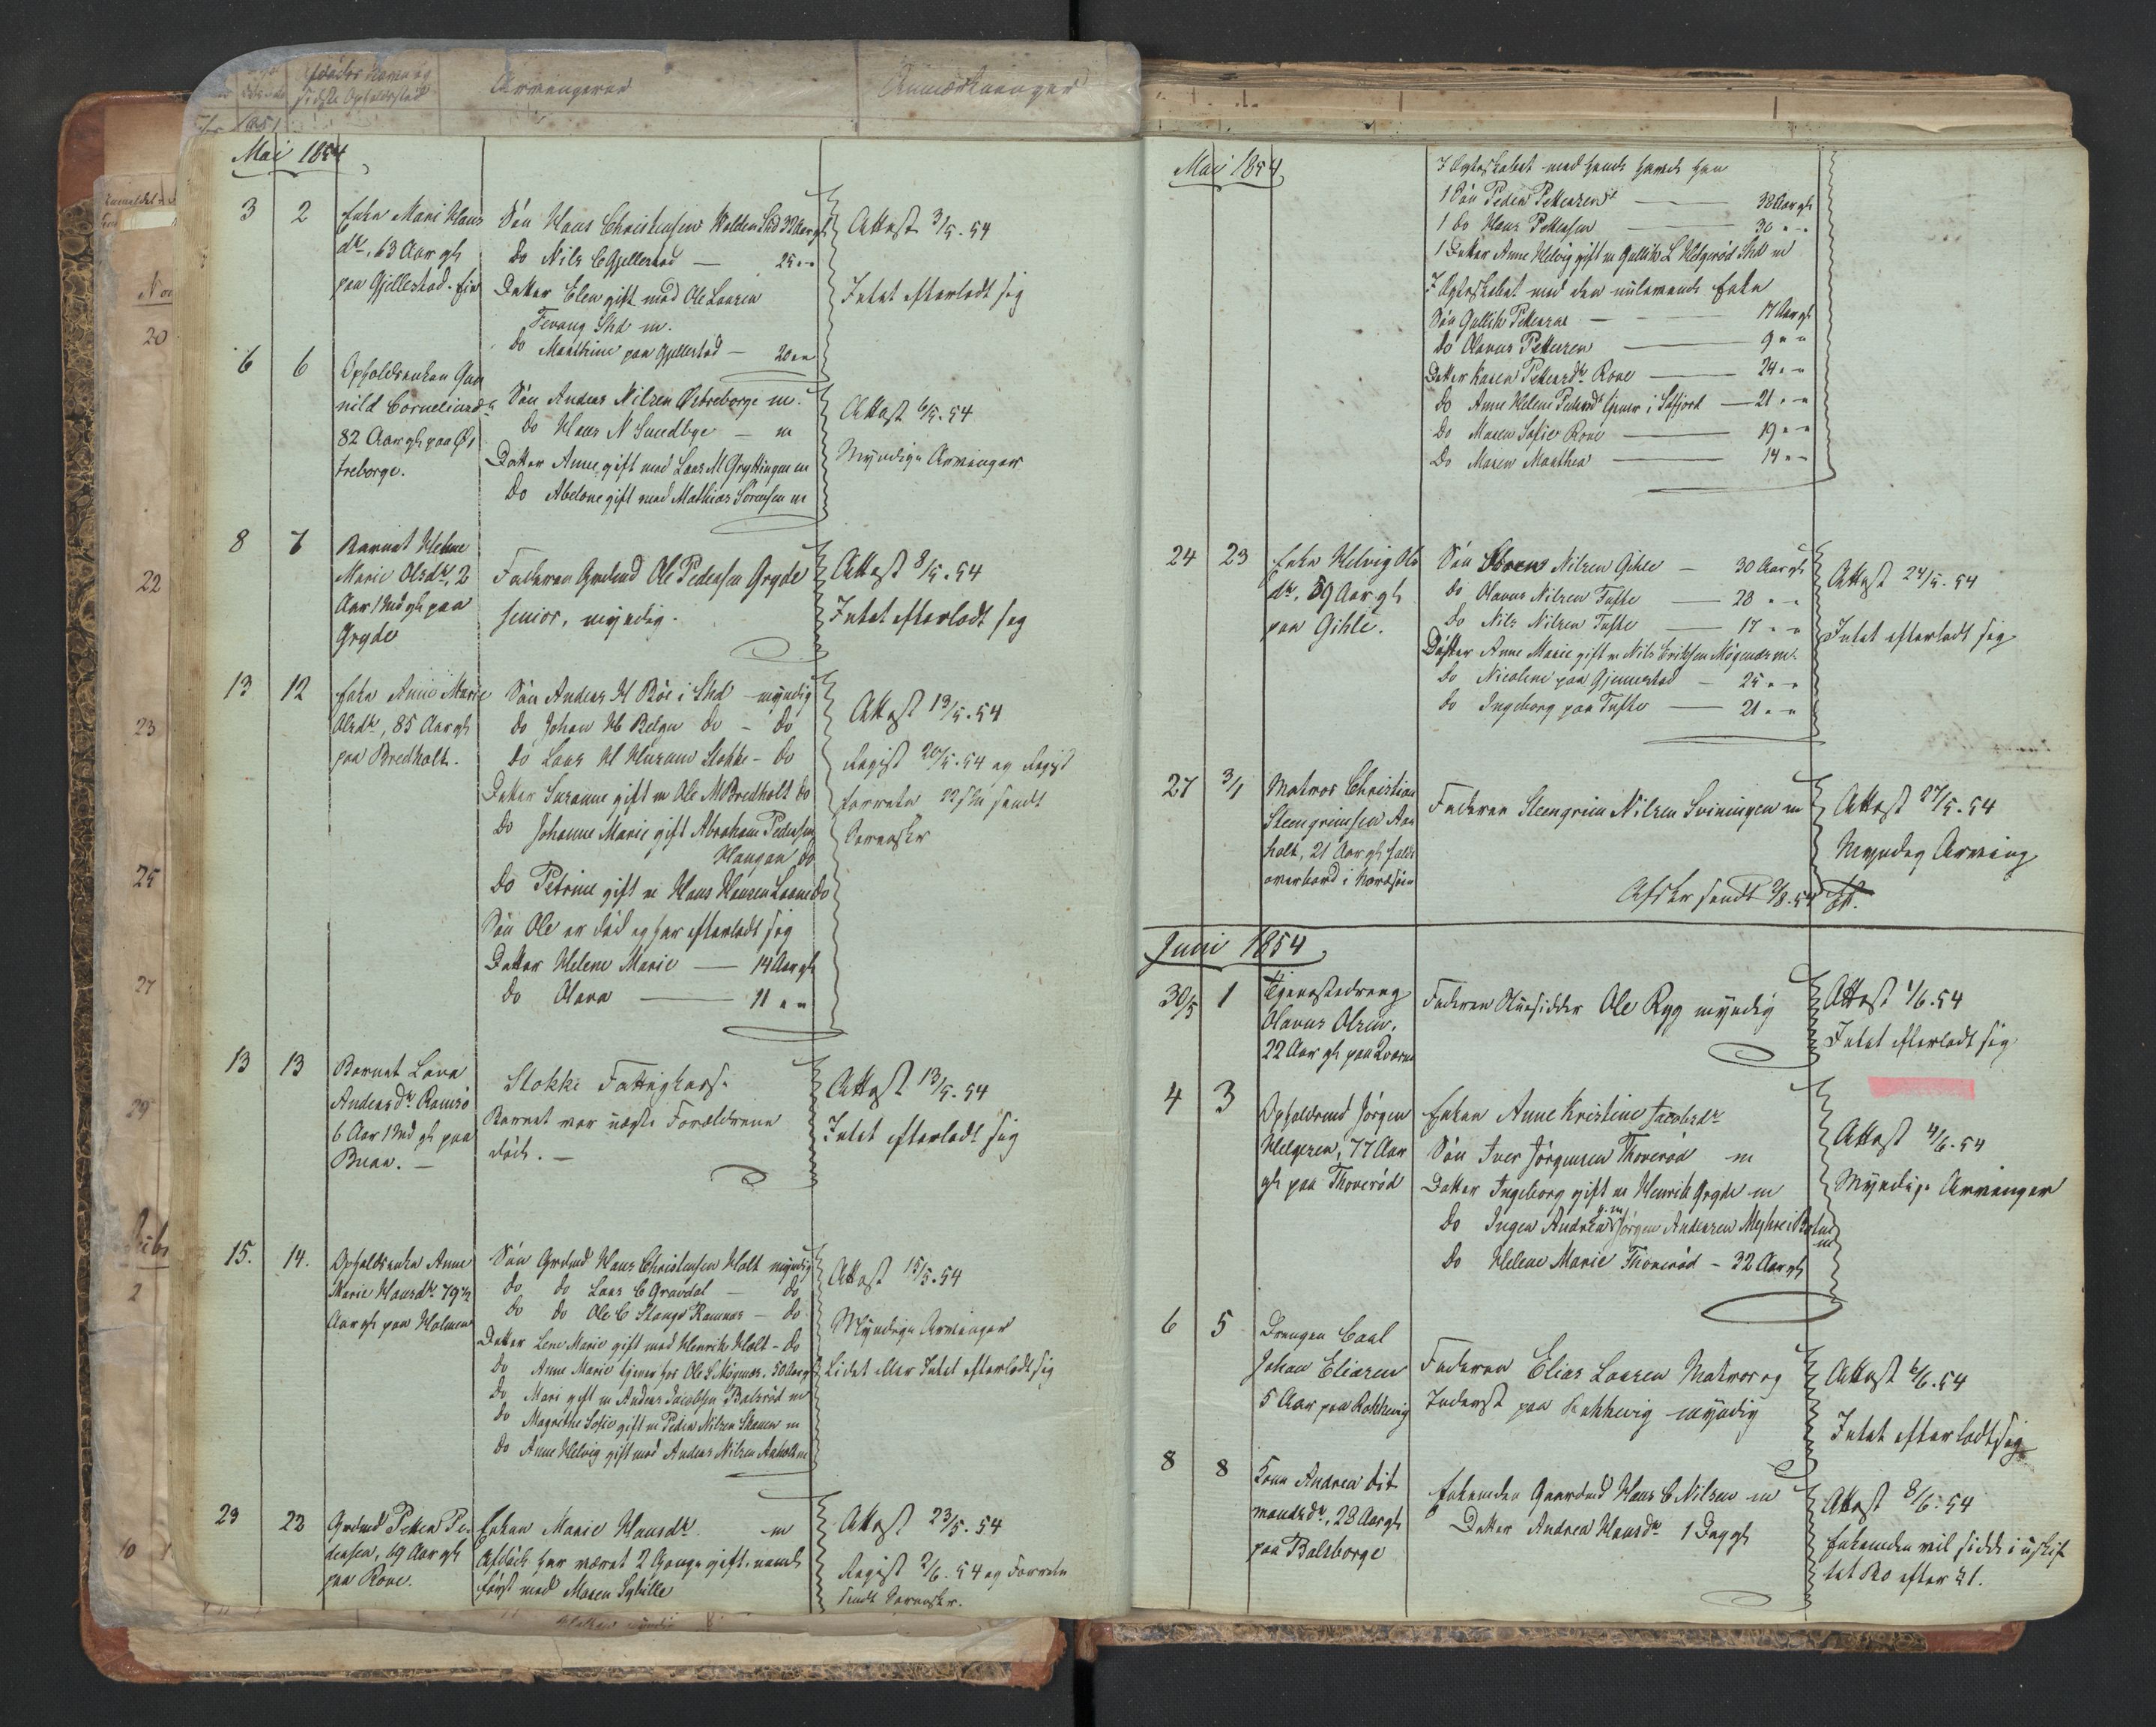 Dødes Navn og
sidste Opholdssted
Arvingerne
Anmærkninger
Mai 1854
3 2 Enke Mari Hans
dr, 63 Aar gl
paa Gjellestad. Eie
Søn Hans Christensen Holden Shd 32 Aar gl
Do Nils C Gjellestad — 25 " "
Datter Elen gift med Ole Larsen
Fevang Shd m.
Do Marthine paa Gjellestad — 20 " "
Attest 3/5. 54
Intet efterladt sig
6 6 Opholdsenken Gun
nild Corneliusdr
82 Aar gl paa Ø
streborge.
Søn Anders Nilsen Østreborge m.
Do Hans N Sundbye — m
Datter Anne gift med Lars M Gryttingen m
Do Abelone gift med Mathias Sørensen m
Attest 6/5. 54
Myndige Arvinger
8 7 Barnet Helene
Marie Olsdr, 2
Aar 1 Md gl paa
Gryde
Faderen Grdmd Ole Pedersen Gryde
senior, myndig.
Attest 8/5. 54
Intet efterladt sig
13 12 Enke Anne Marie
Olsdr, 85 Aar gl
paa Bredholt.
Søn Anders H Bøe i Shd myndig
Do Johan H Belgen do - do
Do Lars H Husum Stokke - do
Datter Susanne gift m Ole M Bredholt do
Do Johanne Marie gift Abraham Pedersen
Haugan do
Do Petrine gift m Hans Hansen Loone do
Søn Ole er død og har efterladt sig
Datter Helene Marie — 14 Aar gl
Do Olava — 11 " "
Attest 13/5. 54
Regist 20/5. 54 og Regist
forretn 22/5 sendt
Sorenskr
13 13 Barnet Lava
Andersdr Ramsø
6 Aar 1 Md gl paa
Buaa. —
Stokke Fattigkasse
Barnet var uægte Forældrene
døde. —
Attest 13/5. 54
Intet efterladt sig
15. 14. Opholdsenke Anne
Marie Hansdr 79 1/2
Aar gl paa Holmen
Søn Grdmd Hans Christensen Holt myndig
do do Lars C Gravdal — do
Do do Ole C Stange Ramnæs — do
Datter Lene Marie gift med Henrik Holt - do
Do Anne Marie tjener hos Ole S Mögenæs. 50 Aar gl
Do Mari gift m Anders Jacobsen Balsrød m
Do Magrethe Sofie gift m Peder Nilsen Skauen m
Do Anne Helvig gift med Anders Nilsen Aaholt m
Attest 15/5. 54
Myndige Arvinger
Lidet eller Intet efterladt sig
23 22 Grdmd Petter Pe
dersen, 69 Aar gl
paa Rone.
Enken Marie Hansdr. m
Afdøde har været 2 Gange gift, nemlig
først med Maren Sybille
Attest 23/5. 54
Regist 2/6. 54 og Forretn
sendt Sorenskr.
Mai 1854
I Ægteskabet med hende havde han
1 Søn Peder Pettersen — 32 Aar gl
1 do Hans Pettersen — 30 " "
1 Datter Anne Helvig gift m Gullik L Helgerød Shd m
I Ægteskabet med den nulevende Enke
Søn Gullik Pettersen — 17 Aar gl
Do Olavus Pettersen — 9 " "
Datter Karen Pettersdr Rone — 24 " "
Do Anne Helene Pettersdr tjener i Søfjord — 21 " "
Do Maren Sofie Rone — 19 " "
Do Maren Marthea — 14 " "
24 23 Enke Helvig Ols
dr, 59 Aar gl
paa Gihle.
Søn Søren Nilsen Gihle — 30 Aar gl
Do Olavus Nilsen Tufte — 28 " "
Do Nils Nilsen Tufte — 17 " "
Datter Anne Marie gift m Nils Eriksen Mögenæs m.
Do Nicoline paa Gjennestad — 25 " "
Do Ingeborg paa Tufte — 21 " "
Attest 24/5. 54
Intet efterladt sig
27 3/1 Matros Christian
Steengrimsen Aa
holt, 21 Aar gl faldt
overbord i Nordsøen
Faderen Steengrim Nilsen Sviningen m
Attest 27/5. 54
Myndig Arving
Afskr sendt 7/8. 54
Juni 1854
30/5 1 Tjenestedreng
Olavus Olsen,
22 Aar gl paa Qvarne
Faderen Huusidder Ole Ryg myndig
Attest 1/6. 54
Intet efterladt sig
4 3 Opholdsmd Jörgen
Helgesen, 77 Aar
gl paa Thoverød
Enken Anne Kristine Jacobsdr
Søn Iver Jörgensen Thoverød m
Datter Ingeborg gift m Henrik Gryde m
Do Inger Andrea g.m Jörgen Andersen
Do Helene Marie Thoverød - 32 Aar gl
Attest 4/6. 54
Myndige Arvinger
6 5 Drengen Carl
Johan Eliasen
5 Aar paa Rakkevig
Faderen Elias Larsen Matros og
Inderst paa Rakkevig myndig
Attest 6/6. 54
Intet efterladt sig
8 8 Kone Andrea Dit
mansdr, 28 Aar gl
paa Bakborge
Enkemden Gaardmd Hans C Nilsen m
Datter Andrea Hansdr 1 Dag gl
Attest 8/6. 54
Enkemden vil sidde i uskif
tet Bo efter § 1.